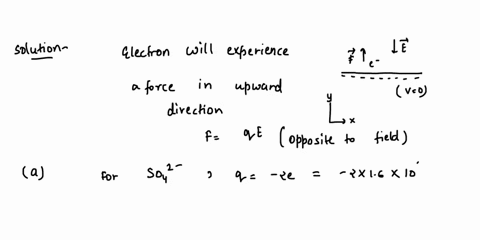 Solution-
Electron will experience
a force in upward
direction
F= qE (opposite to field)
F⃗ ↑ e⁻ ↓ E⃗
(V=0)
y
x
(a) for SO₄²⁻ , q = -2e = -2×1.6×10